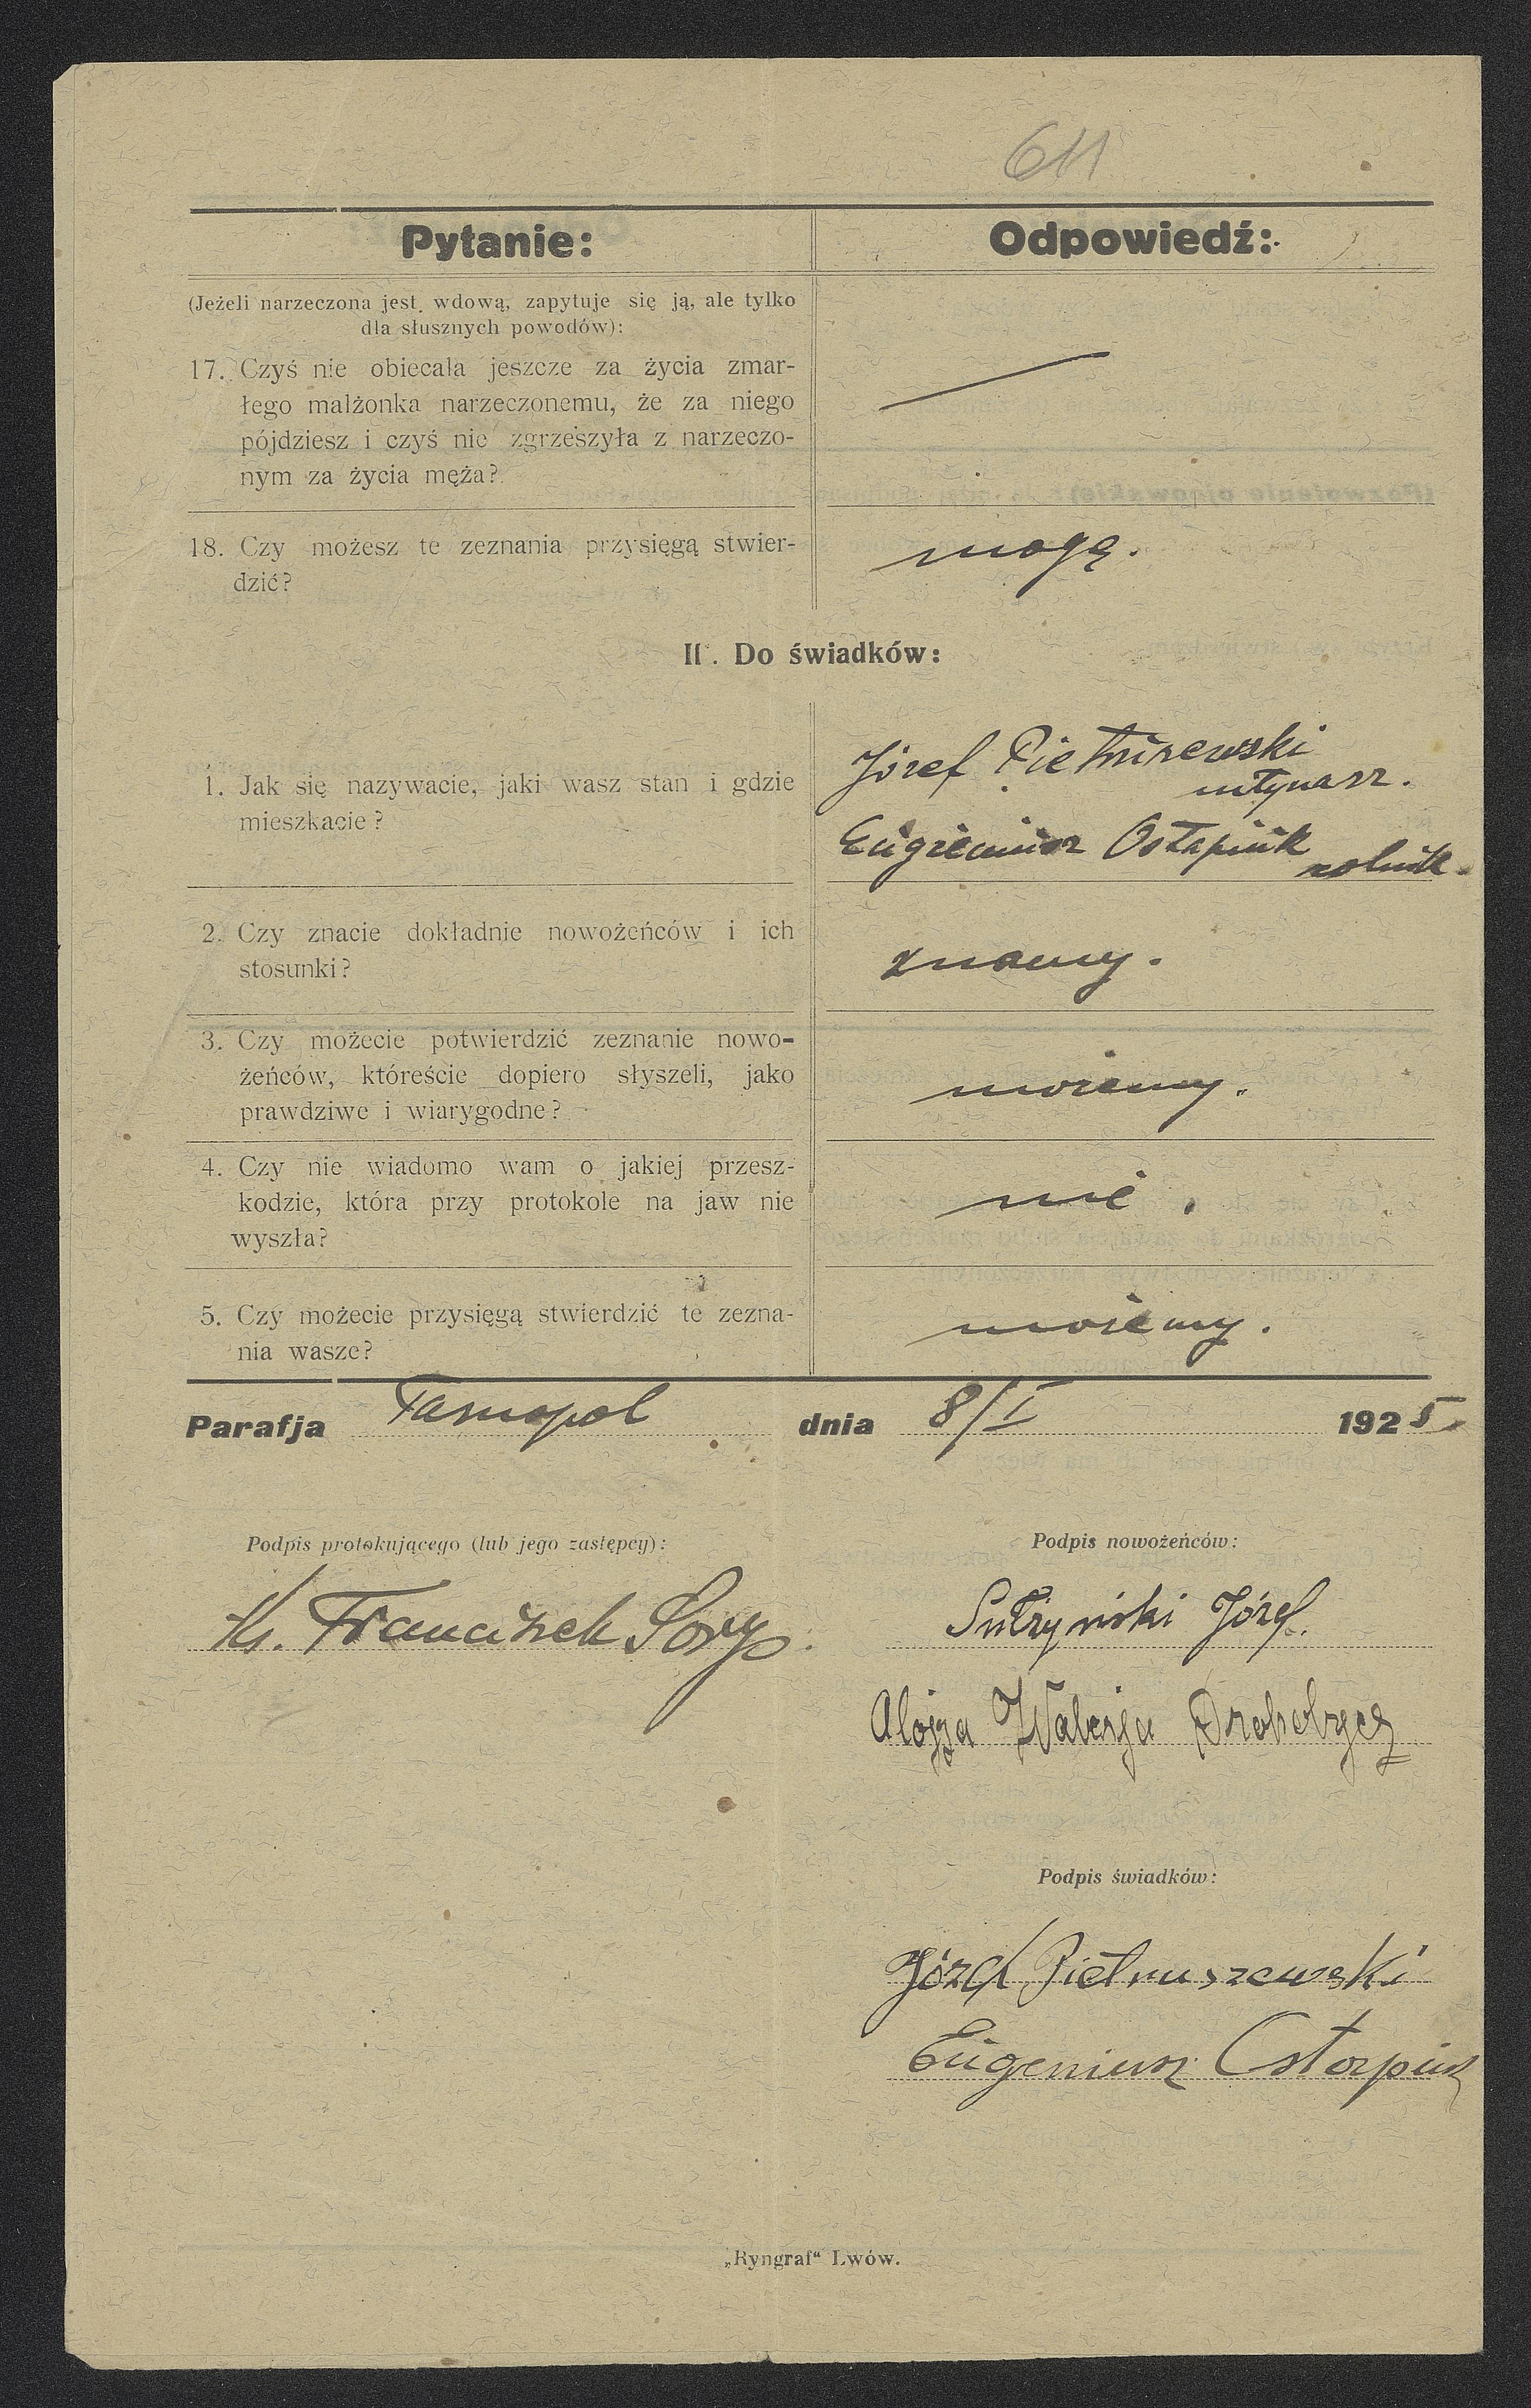 611
Pytanie: Odpowiedź:
(Jeżeli narzeczona jest wdową, zapytuje się ją, ale tylko
dla słusznych powodów):
17. Czyś nie obiecała jeszcze za życia zmar-
łego malżonka narzeczonemu, że za niego
pójdziesz i czyś nie zgrzeszyła z narzeczo-
nym za życia męża?
18. Czy możesz te zeznania przysięgą stwier-
dzić?
mogę.
II. Do świadków:
1. Jak się nazywacie, jaki wasz stan i gdzie
mieszkacie?
Józef Pietruszewski
młynarz.
Eugieniusz Ostapiuk
rolnik.
2. Czy znacie dokładnie nowożeńców i ich
stosunki?
znamy.
3. Czy możecie potwierdzić zeznanie nowo-
żeńców, któreście dopiero słyszeli, jako
prawdziwe i wiarygodne?
możemy.
4. Czy nie wiadomo wam o jakiej przesz-
kodzie, która przy protokole na jaw nie
wyszła?
nie.
5. Czy możecie przysięgą stwierdzić te zezna-
nia wasze?
możemy.
Parafja Tarnopol dnia 8/I 1925
Podpis protokującego (lub jego zastępcy):
Ks. Franciszek
Podpis nowożeńców:
Józef
Alojza Walerja Drohobycz
Podpis świadków:
Józef Pietruszewski
Eugeniusz Ostapiuk
„Ryngraf“ Lwów.